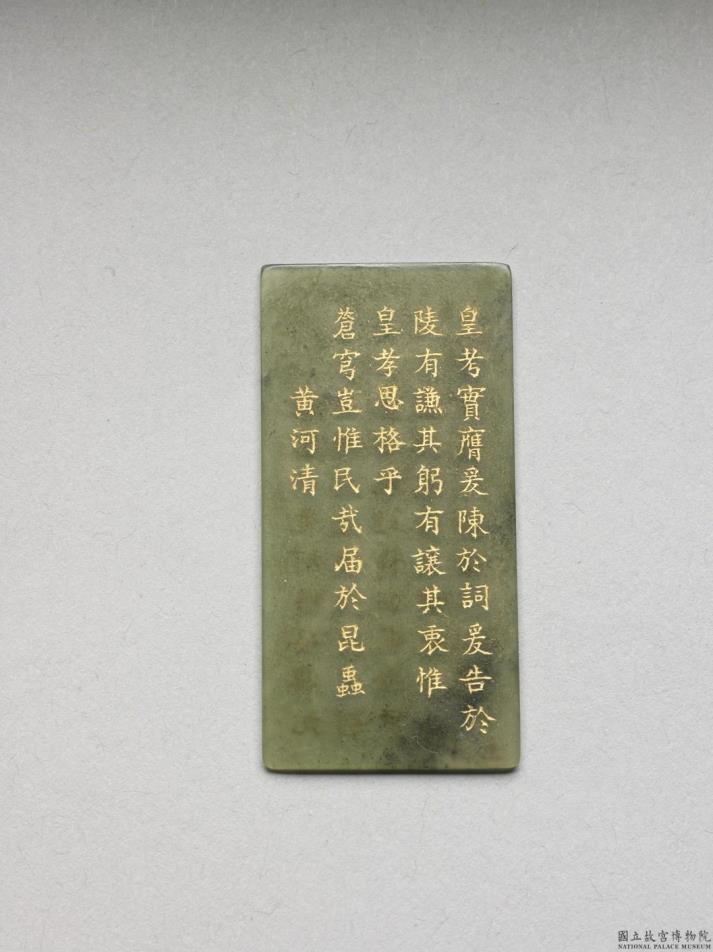 皇考實膺爰陳於詞爰告於
陵有謙其躬有讓其衷惟
皇孝思格乎
蒼穹豈惟民哉届於昆蟲
黃河清
國立故宮博物院
NATIONAL PALACE MUSEUM